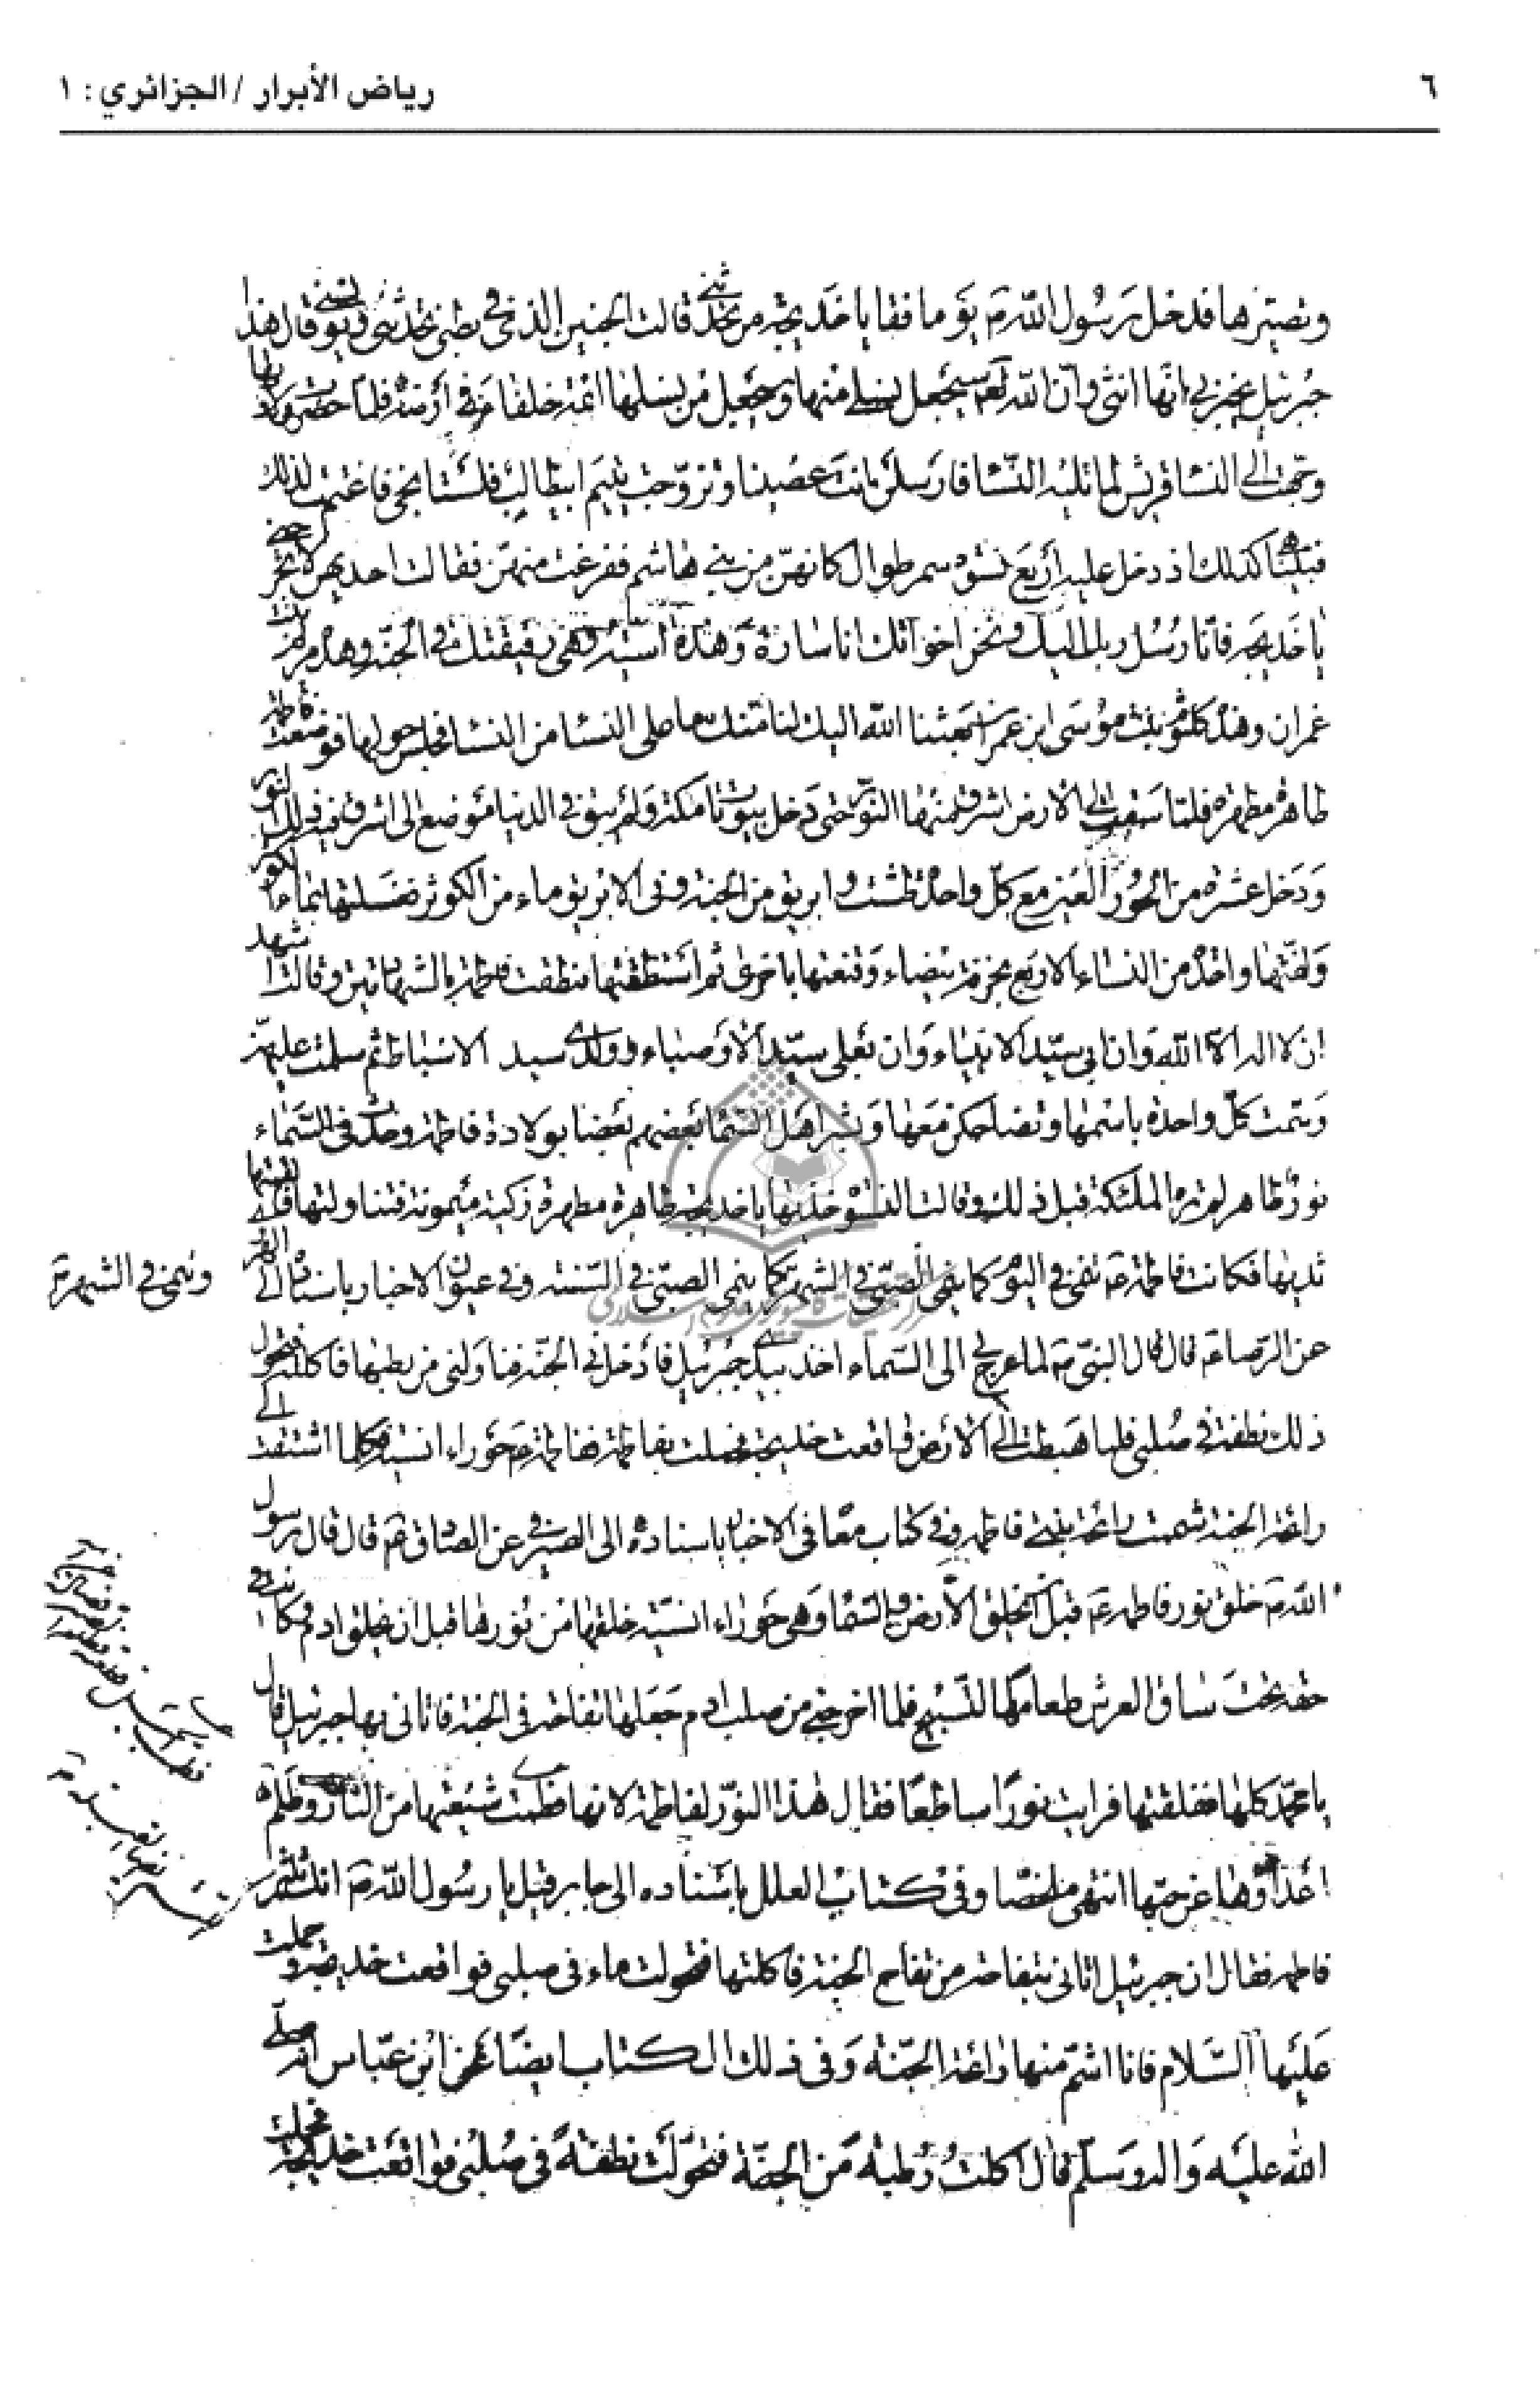 رياض الأبرار / الجزائري : ١
٦
وتصبرها فدخل رسول الله ص يوما فقا يا خديجة من تحدثني قالت الجنين الذي في بطني يحدثني ويونسني قال هذا
جبرئيل يخبرني انها انثى وان الله تعالى سيجعل نسلي منها وسيجعل من نسلها ائمة خلفاء في أرضه فلما حضرت ولادتها
وجهت الى النسا قريش لما تليه النسا فارسلن بانت عصيتنا وتزوجت يتيم ابيطالب فلسنا نجي فاغتمت لذلك
فبينا هي كذلك اذ دخل عليه أربع نسوة سمر طوال كانهن من بني هاشم ففزعت منهن فقالت احديهن لا تحزني
يا خديجة فانا رسل ربك اليك ونحن اخواتك انا سارة وهذه آسية وهي رفيقتك في الجنة وهذه مريم بنت
عمران وهذه كلثوم بنت موسى ابن عمران بعثنا الله اليك لنا منك ما على النسا من النسا فجلس حولها فوضعت فاطمة
طاهرة مطهرة فلما سقطت الى الارض اشرق منها النور حتى دخل بيوتات مكة ولم يبق في الدنيا موضع الى اشرق فيه ذلك النور
ودخل عشرة من الحور العين مع كل واحدة طشت وابريق من الجنة وفي الابريق ماء من الكوثر فغسلتها بماء الكوثر
ولفتها واحدة من النساء الاربع بخرقة بيضاء وقنعتها باخرى ثم استنطقتها فنطقت فاطمة بالشهادتين وقالت اشهد
ان لا اله الا الله وان ابي سيد الانبياء وان بعلي سيد الأوصياء وولدي سيد الاسباط ثم سلمت عليهن
وسمت كل واحدة باسمها وتضاحكن معها وبشر اهل السما بعضهم بعضا بولادة فاطمة وحدث في السماء
نور ظاهر لم تره الملئكة قبل ذلك وقالت النسوة خذيها يا خديجة طاهرة مطهرة زكية ميمونة فتناولتها فالقمتها
ثديها فكانت فاطمة ع تنمى في اليوم كما ينمى الصبي في الشهر كما ينمى الصبي في السنة وفي عيون الاخبار باسناده الى الهروي
وتنمى في الشهر
عن الرضا ع قال قال النبي ص لما عرج بي الى السماء اخذ بيدي جبرئيل فأدخلني الجنة فناولني من رطبها فاكلته فتحول
ذلك نطفة في صلبي فلما هبطت الى الأرض واقعت خديجة فحملت بفاطمة ففاطمة ع حوراء انسية فكلما اشتقت الى
رائحة الجنة شممت رائحة ابنتي فاطمة وفي كتاب معاني الاخبار باسناده الى الصيرفي عن الصادق ع قال قال رسول
الله ص خلق نور فاطمة ع قبل ان يخلق الأرض والسما وهي حوراء انسية خلقها من نورها قبل ان يخلق ادم كانت في
حقة تحت ساق العرش طعامها التسبيح فلما اخرجني من صلب ادم جعلها تفاحة في الجنة فاتاني بها جبرئيل قال
يا محمد كلها ففلقتها فرايت نورا ساطعا فقال هذا النور لفاطمة لانها فطمت شيعتها من النار وفطم
اعداؤها عن حبها انتهى ملخصا وفي كتاب العلل باسناده الى جابر قيل يا رسول الله ص انك تلثم
فاطمة فقال ان جبرئيل اتاني بتفاحة من تفاح الجنة فاكلتها فتحولت ماء في صلبي فواقعت خديجة فحملت
عليها السلام فانا اشم منها رائحة الجنة وفي ذلك الكتاب ايضا عن ابن عباس انه صلى
الله عليه واله وسلم قال اكلت رطبة من الجنة فتحولت نطفة في صلبي فواقعت خديجة فحملت